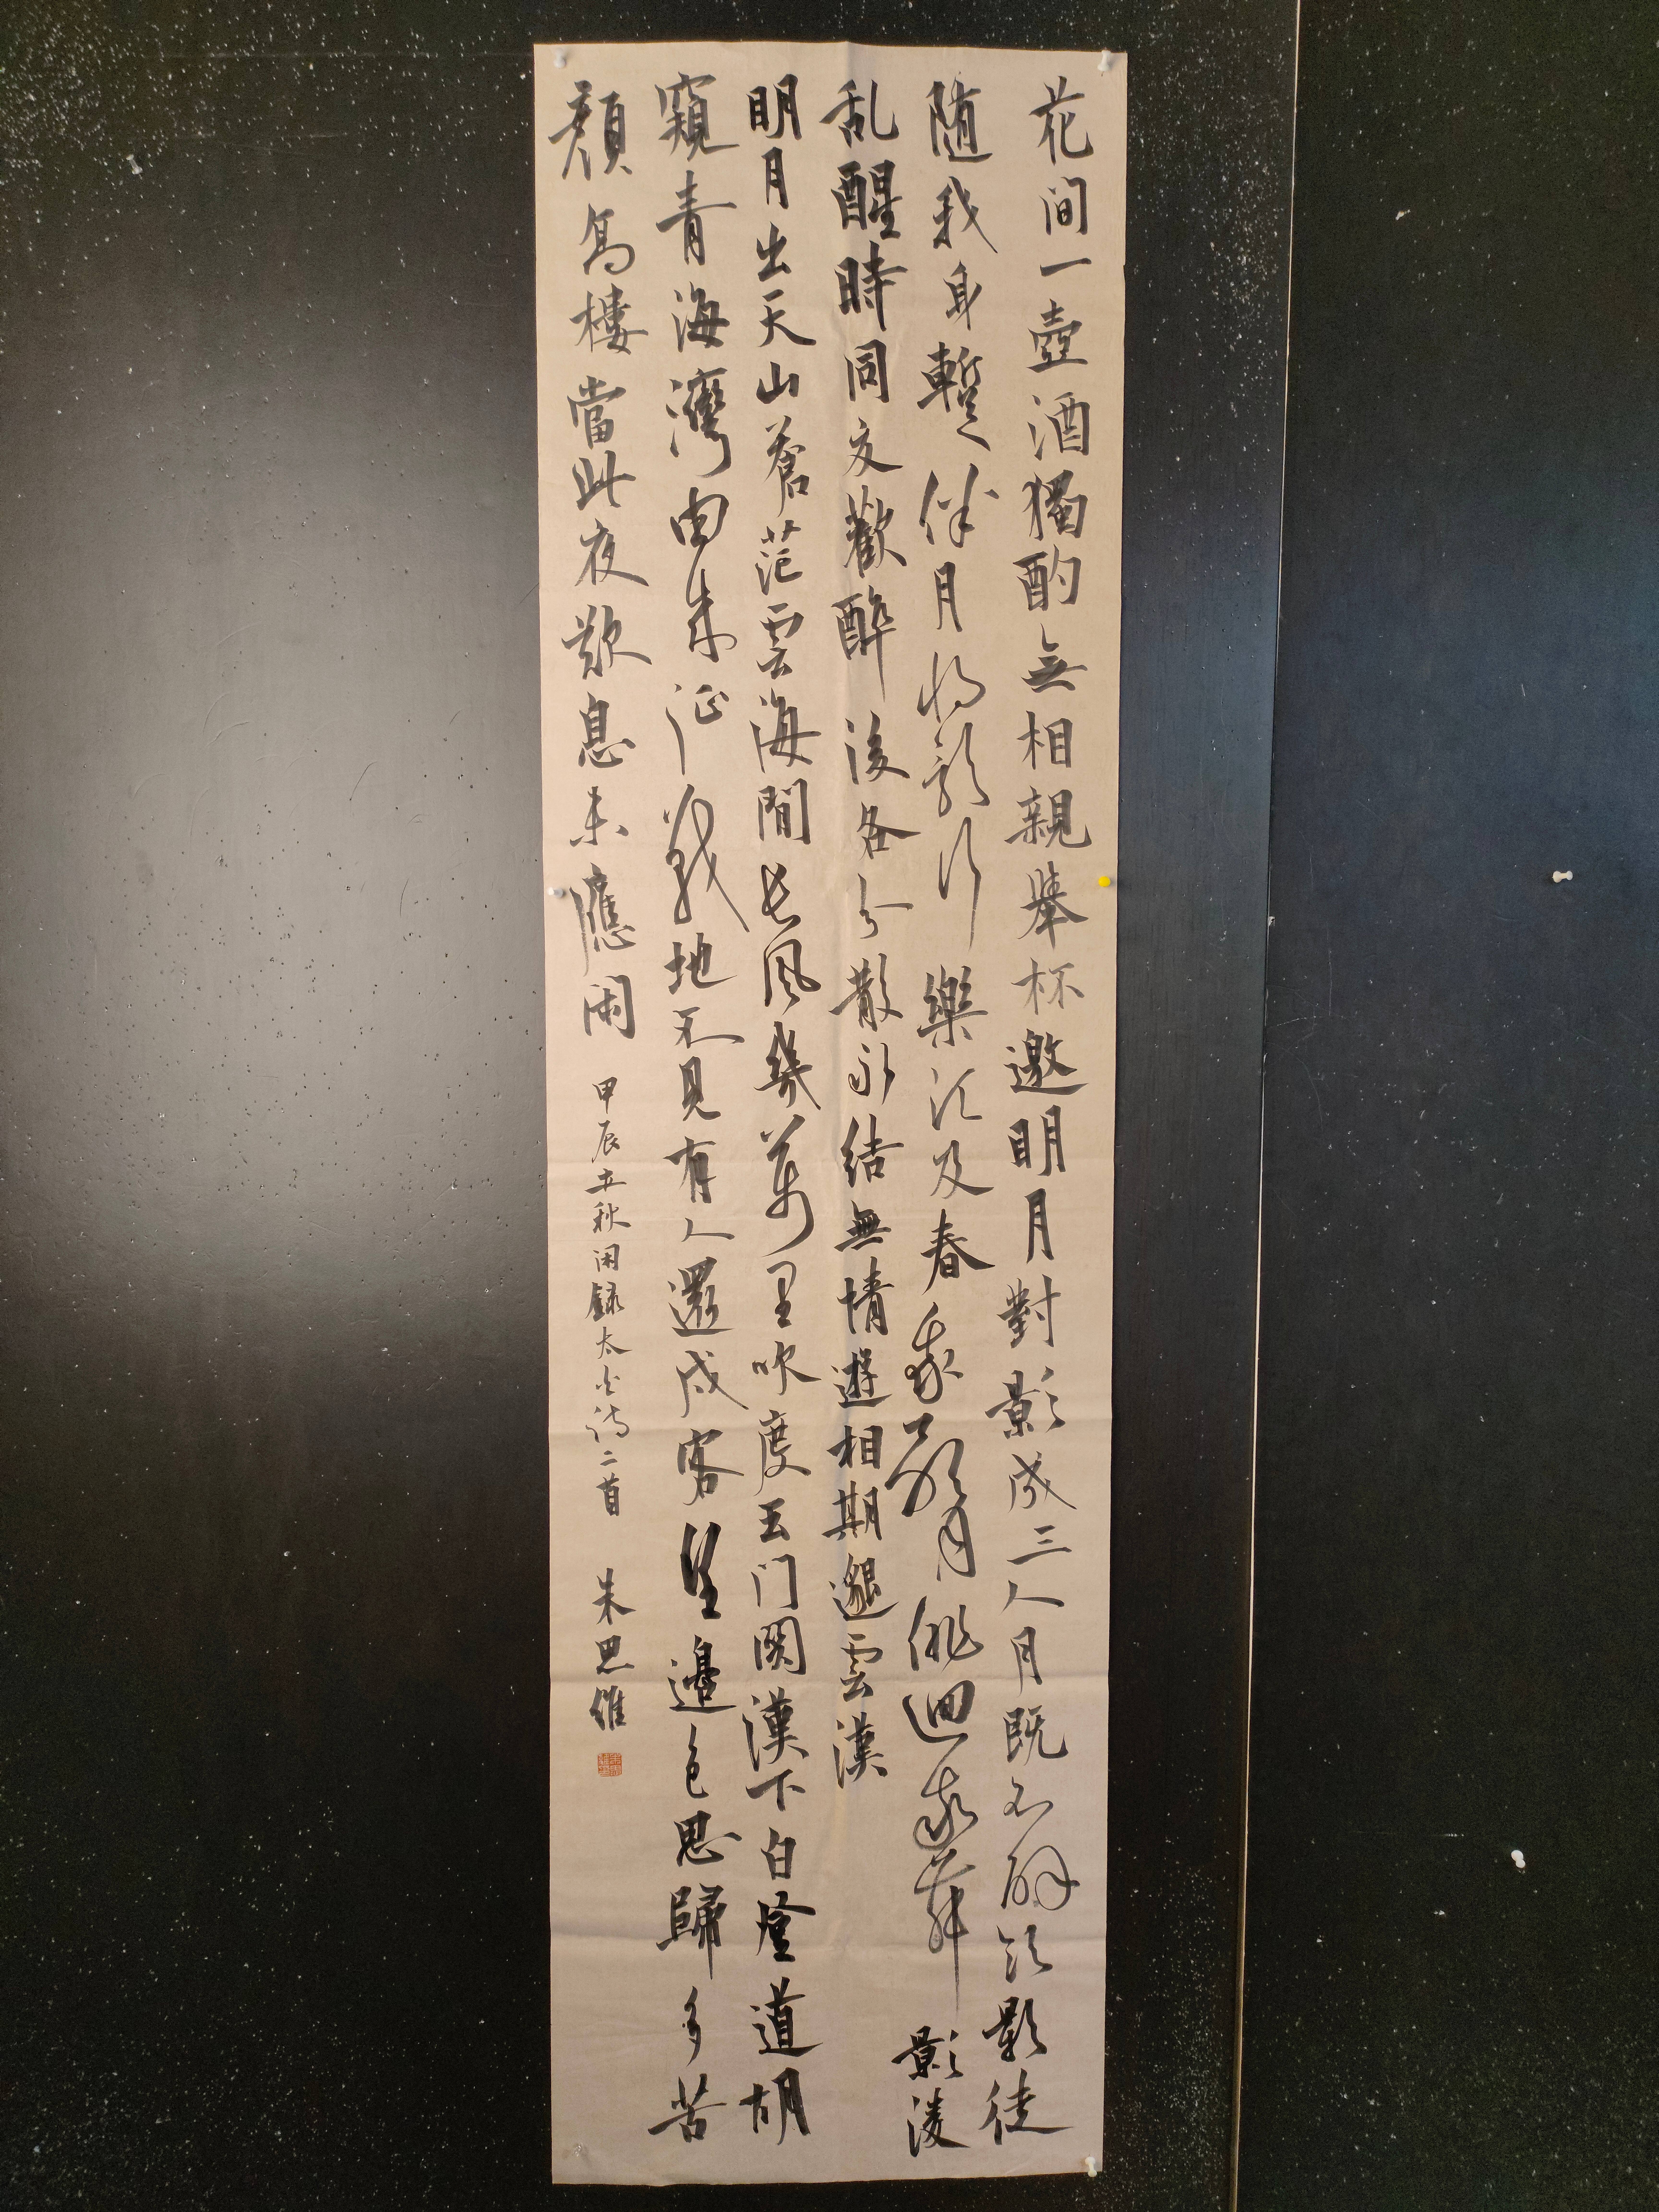 花间一壺酒獨酌無相親舉杯邀明月對影成三人月既不解飲影徒
随我身蹔伴月将影行樂須及春我歌月俳迴我舞影凌
乱醒時同交歡醉後各分散永結無情遊相期邈雲漢
明月出天山蒼茫雲海間長風幾萬里吹度玉门関漢下白登道胡
窺青海灣由来征戰地不見有人還戍客望邊色思歸多苦
顔高樓當此夜歎息未應闲
甲辰立秋闲録太白詩二首 朱思維